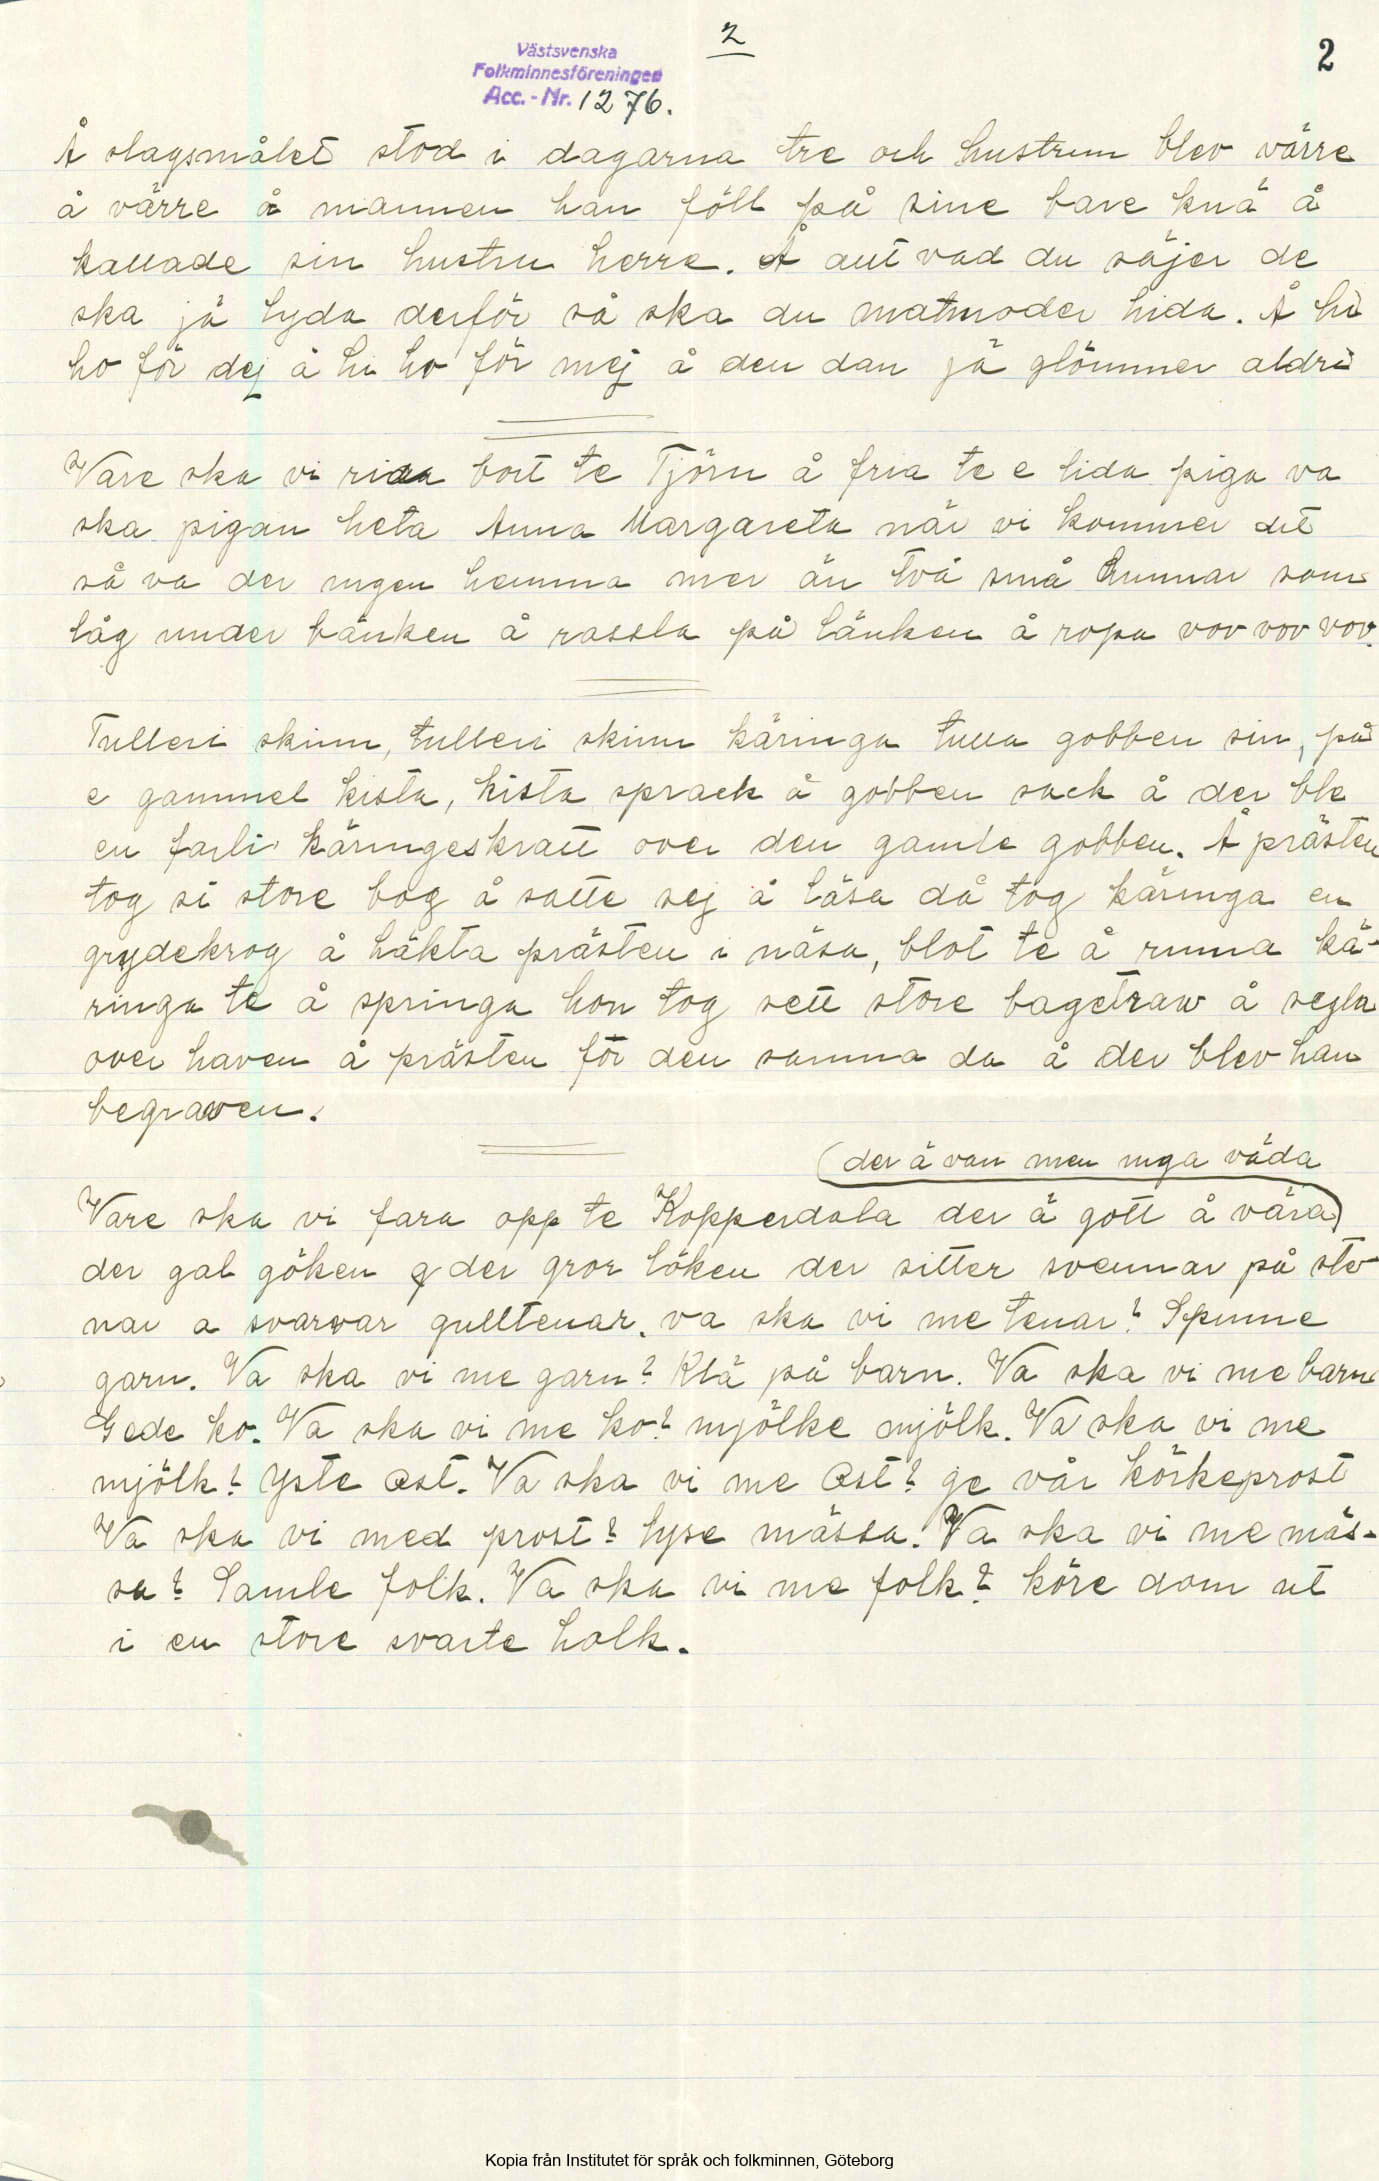 2
2
Västsvenska
Folkminnesföreningen
Acc.-Nr. 1276.
Å slagsmålet stod i dagarna tre och hustrun blev värre
å värre å mannen han föll på sine bare knä å
kallade sin hustru herre. Å allt vad du säjer de
ska jä lyda derför så ska du matmoder hida. Å hi
ho för dej å hi ho för mej å den dan jä glömmer aldri
Vare ska vi rida bort te Tjörn å fria te e lida piga va
ska pigan heta Anna Margareta när vi kommer dit
så va der ingen hemma mer än två små hunnar som
låg under bänken å rassla på länken å ropa vov vov vov.
Tulleri skinn, tulleri skinn käringa tulla gobben sin, på
e gammel kista, kista sprack å gobben sack å der ble
en farli käringeskratt over den gamle gobben. Å prästen
tog si store bog å satte sej å läsa då tog käringa en
grydekrog å häkta prästen i näsa, blot te å runna kä-
ringa te å springa hon tog sett store bagetraw å segla
over haven å prästen för den samma da å der blev han
begraven.
(der å van men inga väda
Vare ska vi fara opp te Kopperdala der å gott å vära)
der gal göken å der gror löken der sitter svennar på ste-
nar a svarvar gulltenar. va ska vi me tenar? Spinne
garn. Va ska vi me garn? Klä på barn. Va ska vi me barn
Gede ko. Va ska vi me ko? mjölke mjölk. Va ska vi me
mjölk? Yste Ost. Va ska vi me Ost? ge vår körkeprost
Va ska vi med prost? lyse mässa. Va ska vi me mäs-
sa? Samle folk. Va ska vi me folk? köre dom ut
i en store svarte holk.
Kopia från Institutet för språk och folkminnen, Göteborg